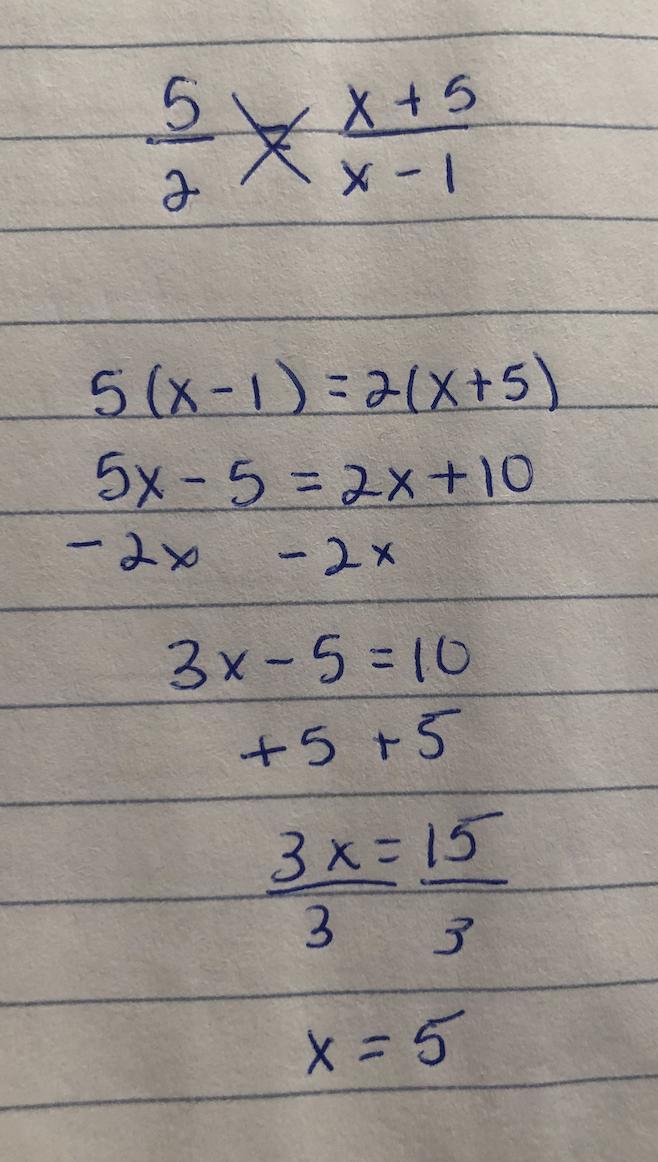 5/2 = x + 5/x - 1
5(x-1)=2(x+5)
5x - 5 = 2x + 10
- 2x - 2x
3x - 5 = 10
+5 +5
3x = 15
3 3
x = 5